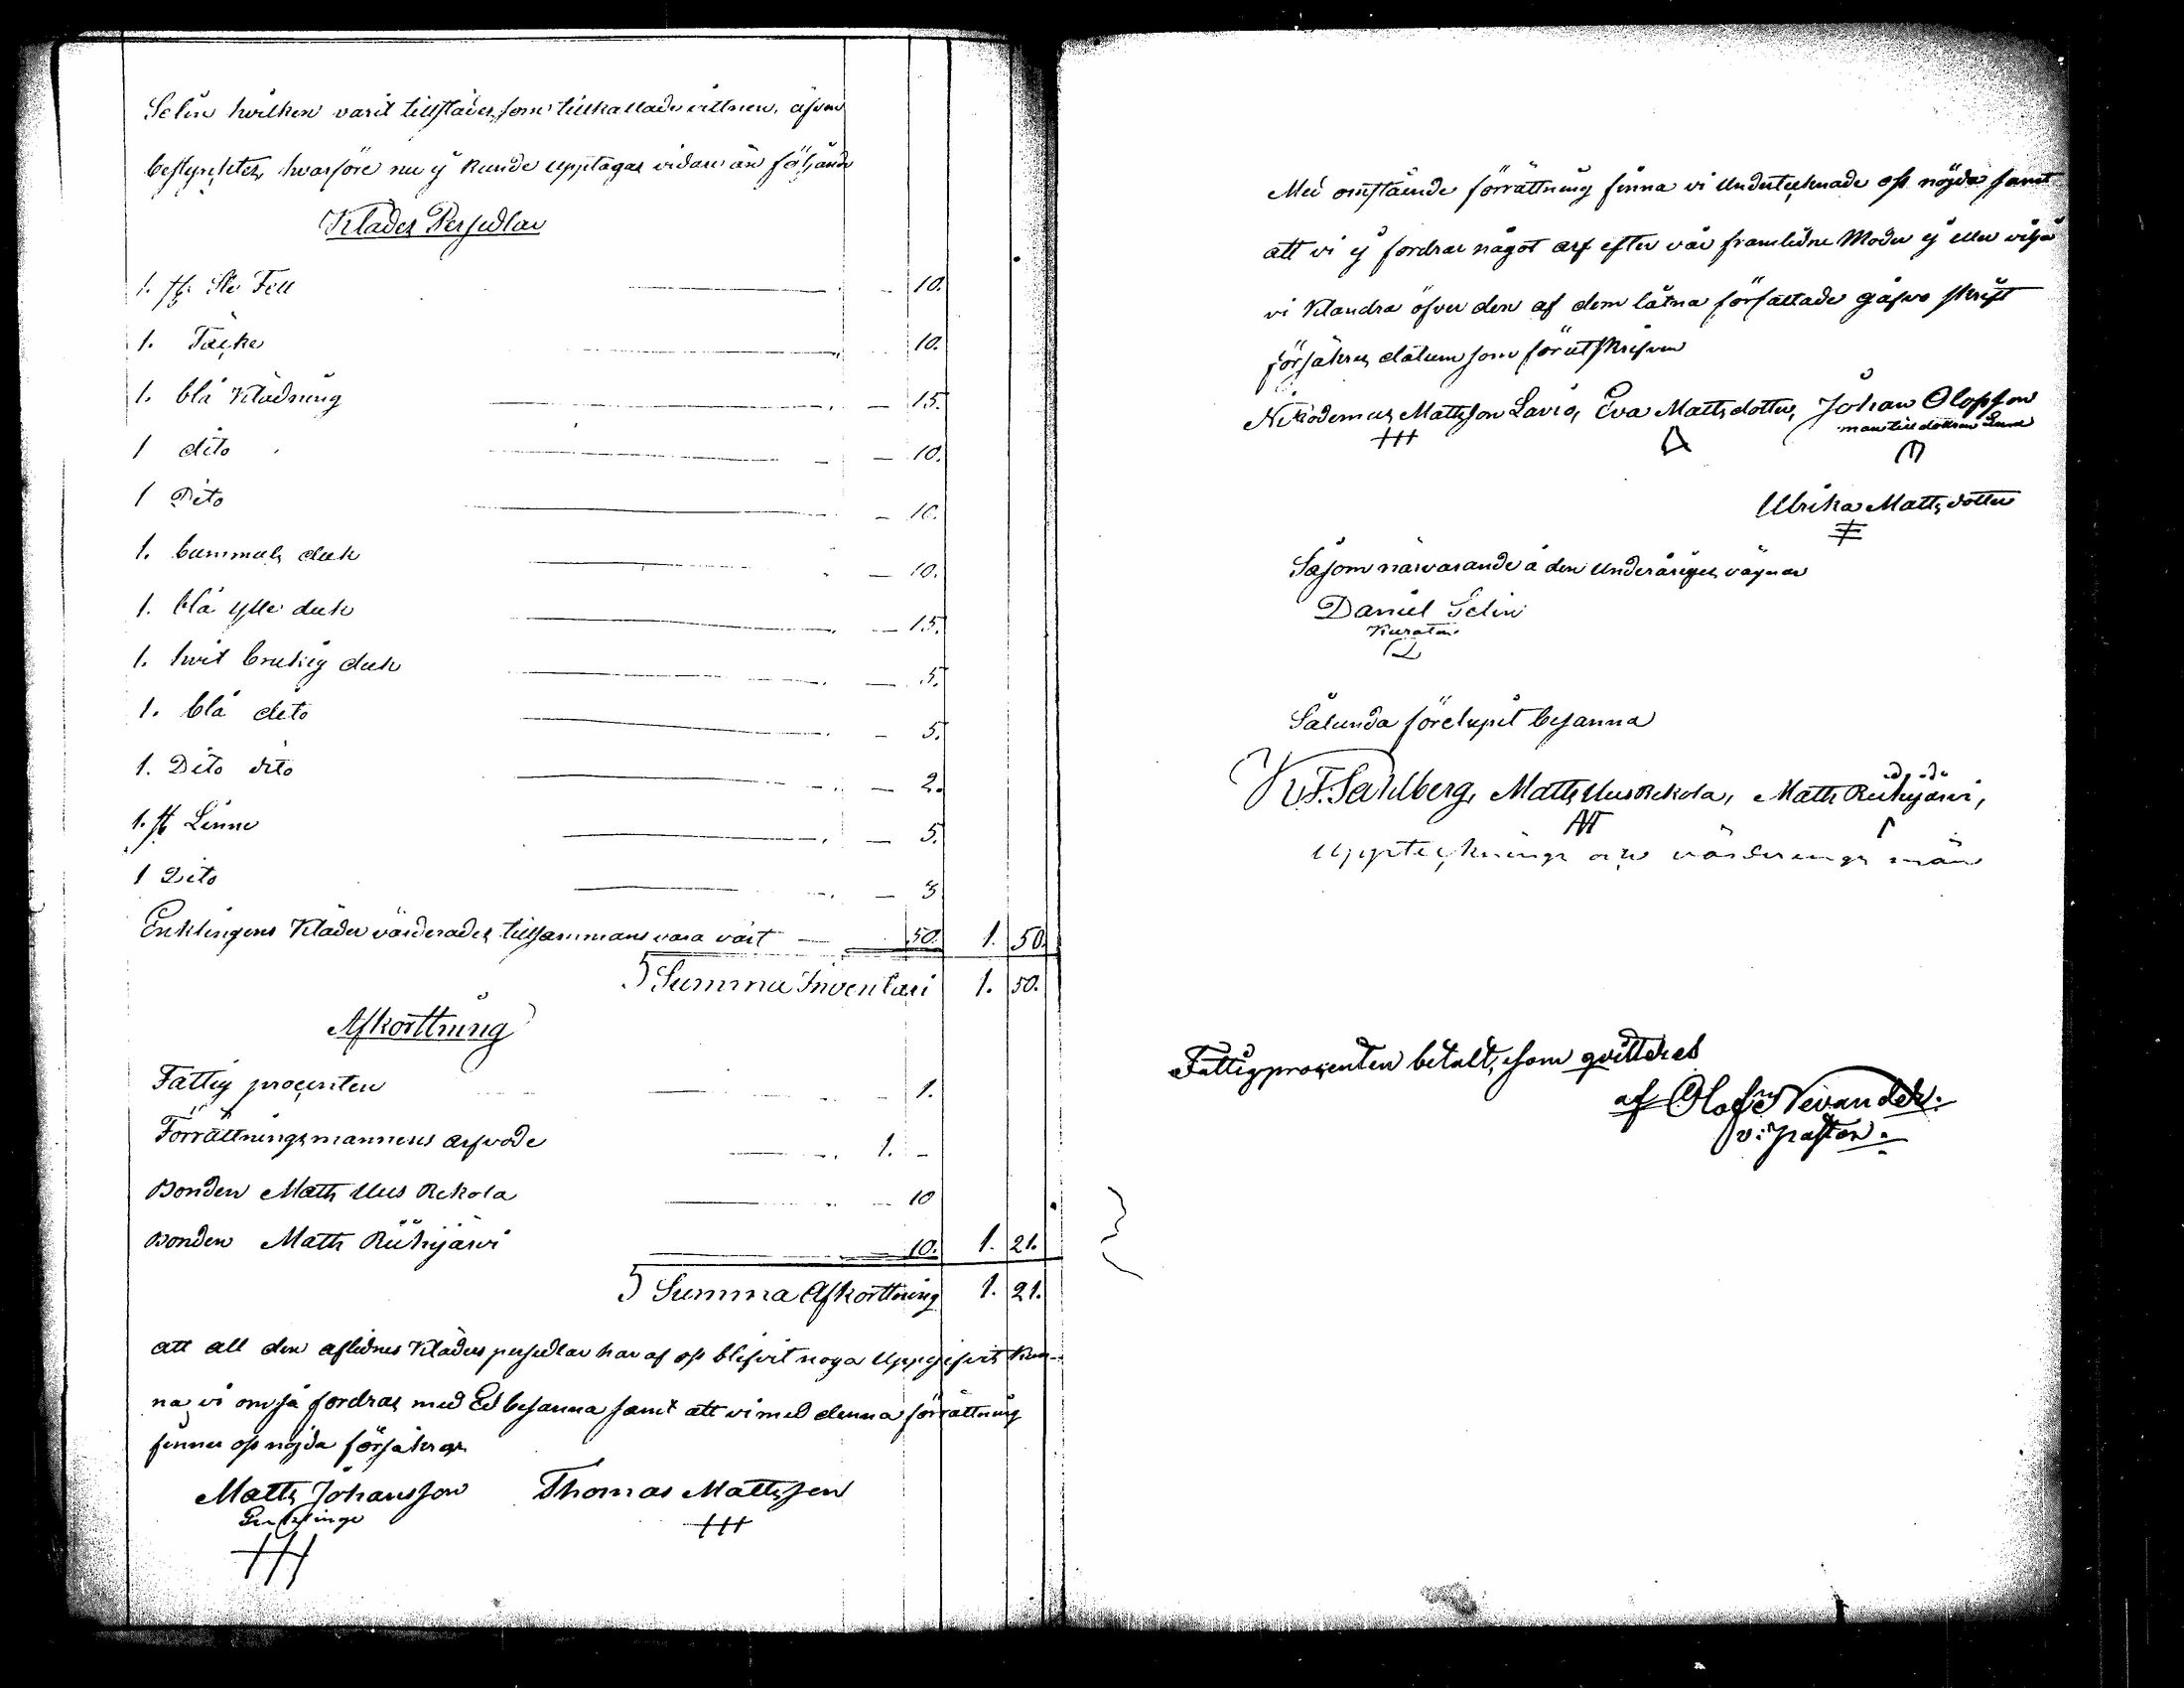 Selin hvilken varit tillstädes som tillkallade vittnen, äfven
bestyrktes, hvarföre nu ej kunde upptagas vidare än följande
Kläder Persedlar
1. st. Fell — 10.
1. Täcke — 10.
1. blå Klädning — 15.
1 dito — 10.
1 Dito — 10.
1. bummuls duk — 10.
1. blå ylle duk — 15.
1. hvit brukig duk — 5.
1. blå dito — 5.
1. Dito dito — 2.
1. st Linne — 5.
1 Dito — 3
Enklingens Kläder värderades tillsammans vara värt — 50. 1. 50.
Summa Inventari 1. 50.
Afkorttning
Fattig procenten — 1.
Förrättningsmannens arfvode — 1. -
Bonden Matts Uus Rekola — 10
Bonden Matts Riihijärvi — 10. 1. 21.
Summa Afkorttning 1. 21.
att all den aflidnes Kläders persedlar har af oss blifvit noga Uppgifvit Kun-
na vi om så fordras med Ed besanna samt att vi med denna förrättning
finner oss nöjda försäkras
Matts Johansson Thomas Mattsson
Enklinge
Med omstående förrättning finna vi Undertecknade oss nöjda samt
att vi ej fordrar något arf efter vår framlidne Moder ej eller vilja
vi Klandra öfver den af dem låtna författade gåfvo skrift
försäkres datum som förutskrifven
Nikodemus Mattsson Lavia, Eva Mattsdotter, Johan Olofsson
man till dottren
Ulrika Mattsdotter
Såsom närvarande å den Underåriges vägnar
Daniel Selin
Kurator
Sålunda förelupit besanna
K. F. Sahlberg, Matts Uus Rekola, Matts Riihijärvi,
Upptecknings och värderings män
Fattigprocenten betalt, som qvitteras
af Olof Nevander.
v: pastor.